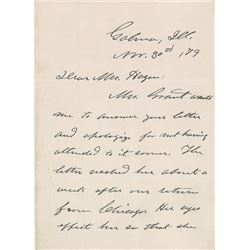 Galena, Ill.
Nov. 30th '79
Dear Mrs. Hogan:
Mrs. Grant wants
me to answer your letter
and apologize for not having
attended to it sooner. The
letter reached her about a
week after our return
from Chicago. Her eyes
affect her so that she